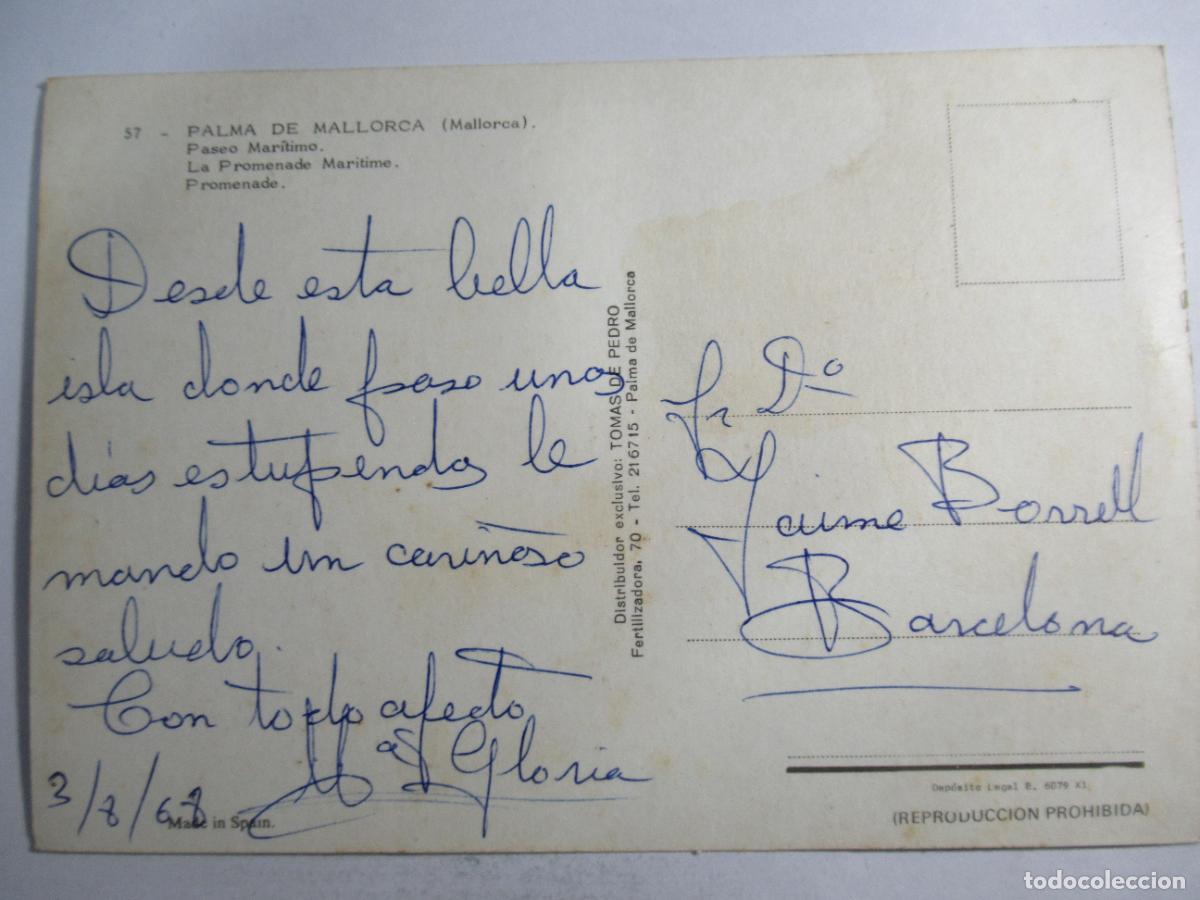 57 - PALMA DE MALLORCA (Mallorca).
Paseo Marítimo.
La Promenade Maritime.
Promenade.
Desde esta bella
isla donde paso unos
días estupendos le
mando un cariñoso
saludo.
Con todo afecto
Mª Gloria
3/8/68
Made in Spain.
Distribuidor exclusivo: TOMAS DE PEDRO
Fertilizadora, 70 - Tel. 216715 - Palma de Mallorca
Sr Dº
Jaime Borrell
Barcelona
Depósito Legal B. 6079 XI
(REPRODUCCION PROHIBIDA)
todocoleccion